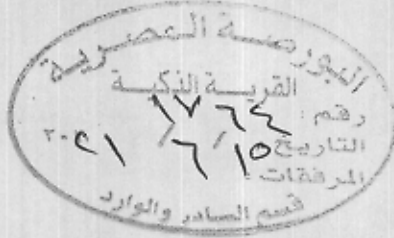 البورصة المصرية
القرية الذكية
رقم : ١٧٦٤
التاريخ ١٥ / ٦ / ٢٠٢١
المرفقات :
قسم الصادر والوارد